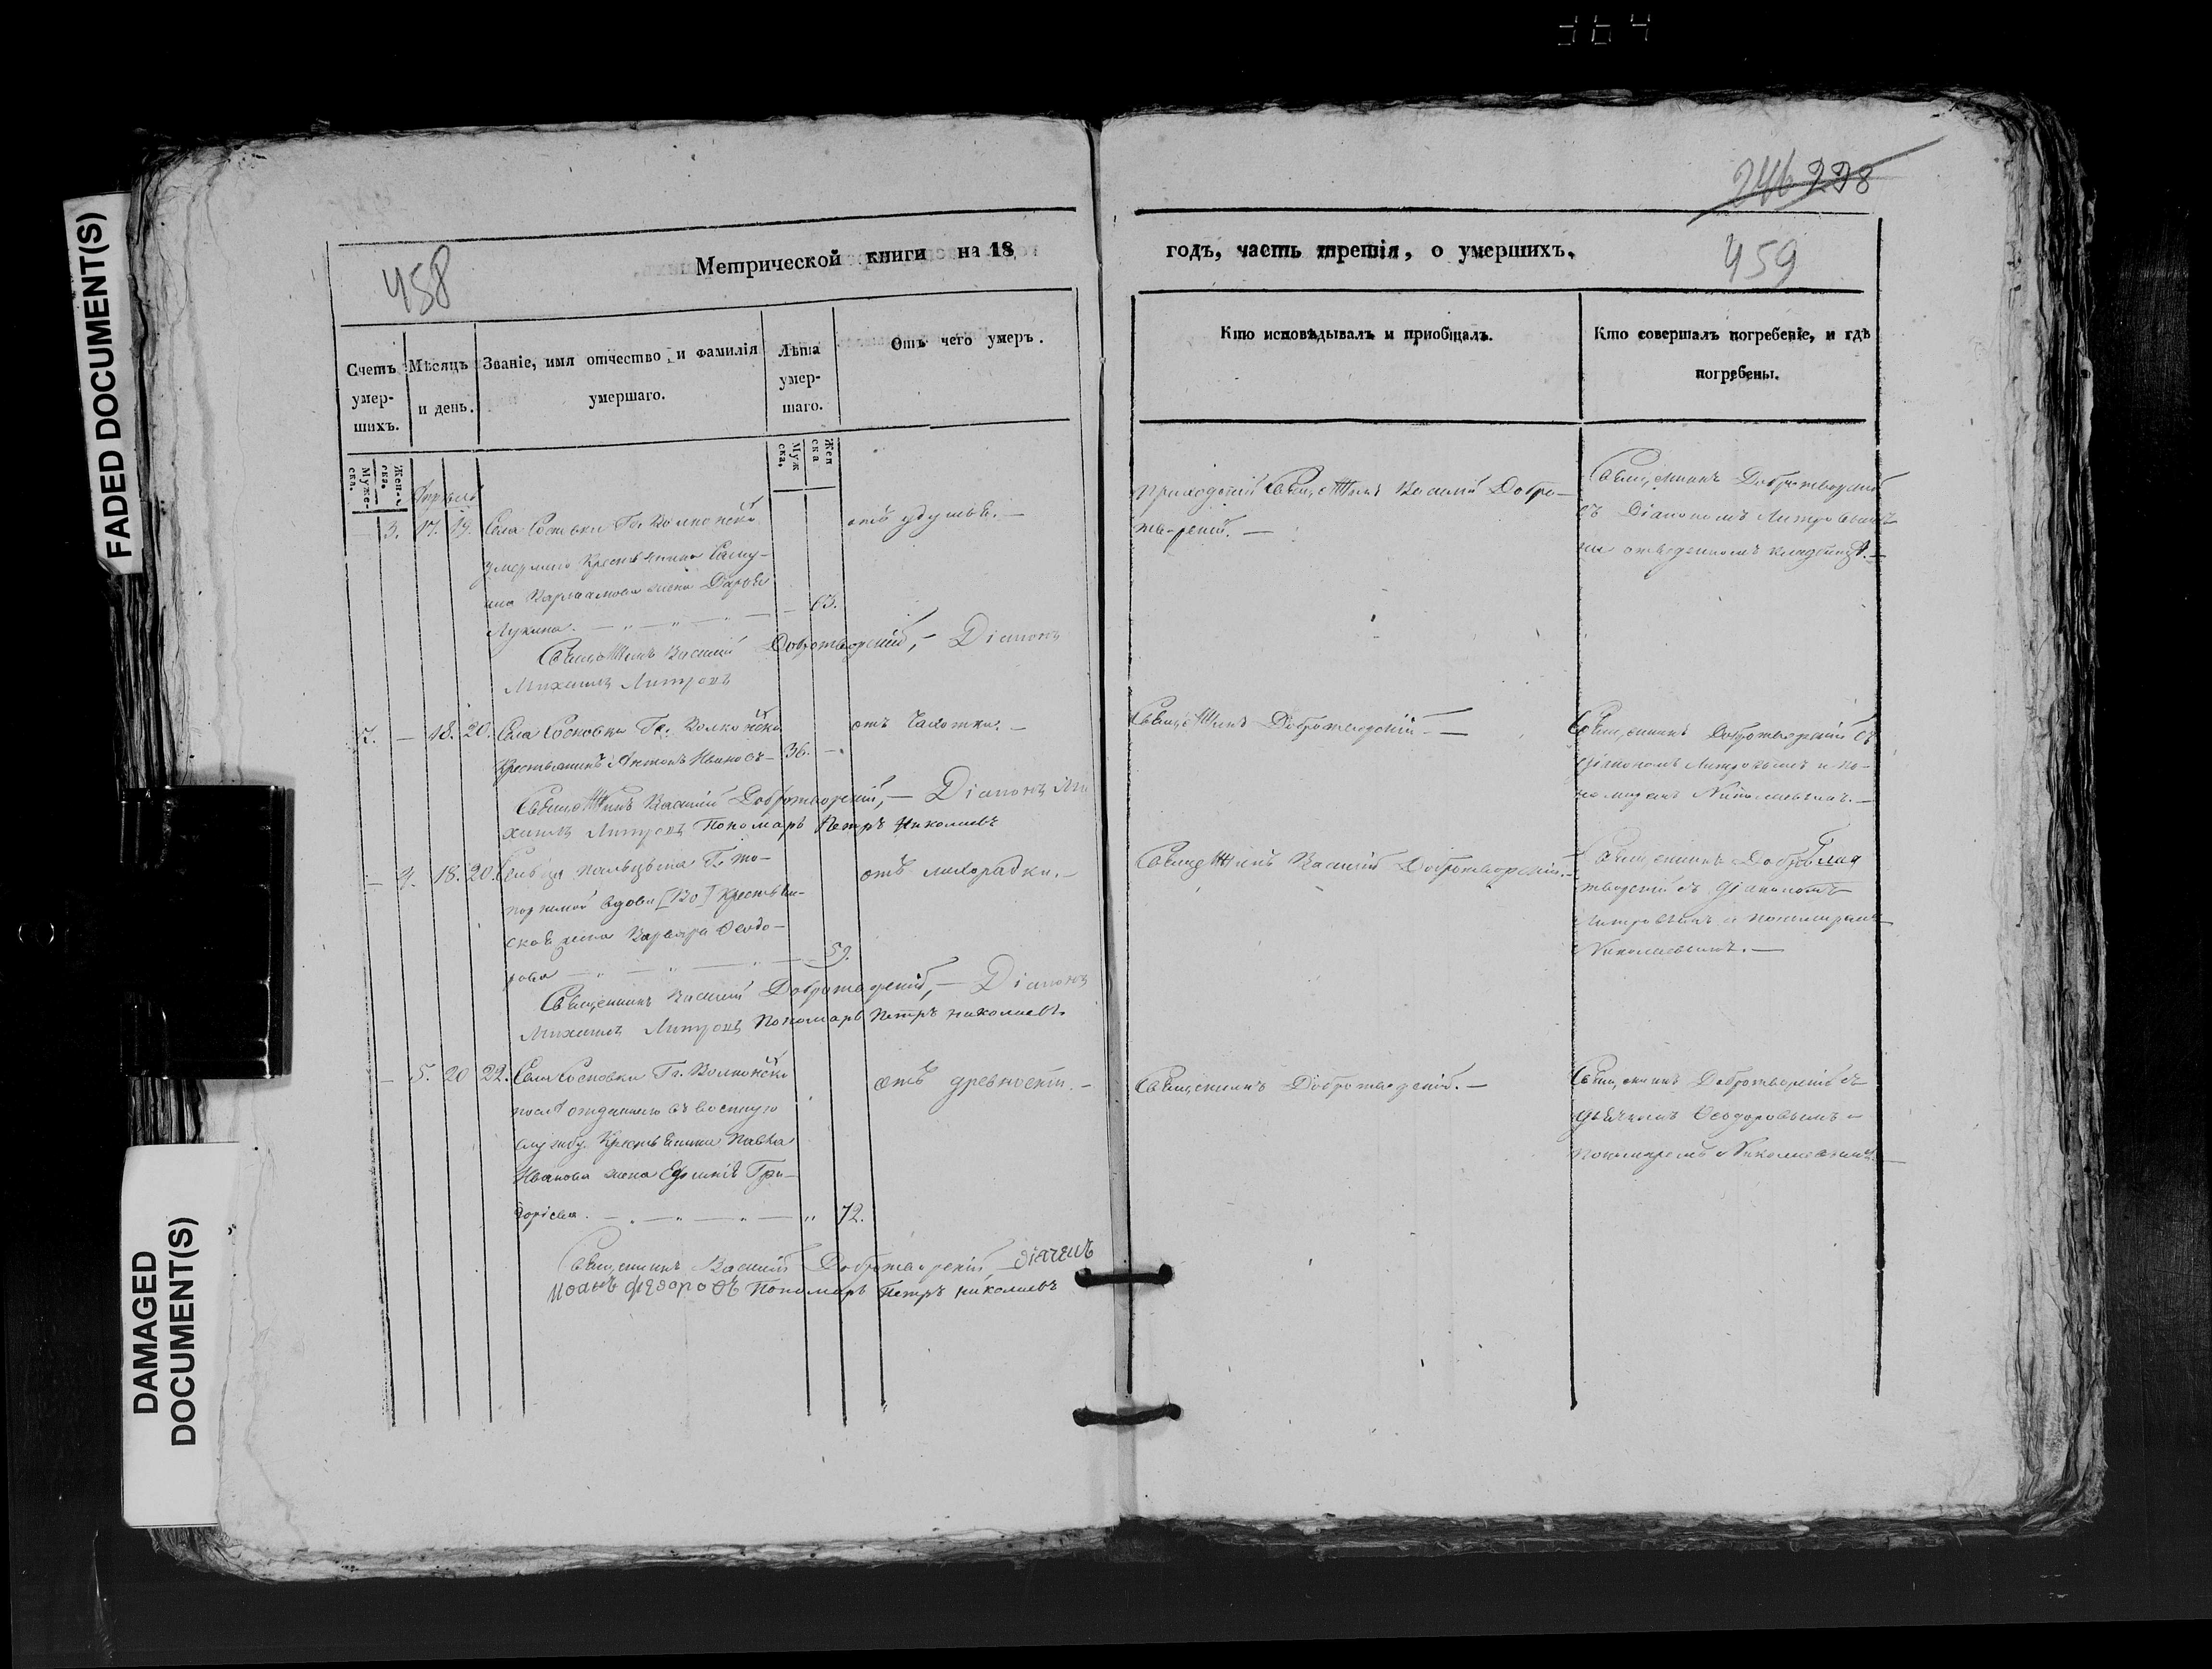 364
FADED DOCUMENT(S)
DAMAGED
DOCUMENT(S)
458
Метрической книги на 18
Счетъ умер-шихъ.
Мѣсяцъ и день.
Званіе, имя отчество, и фамилія умершаго.
Лѣта умер-шаго.
Отъ чего умеръ.
Муже-ска.
Жен-ска.
Муж ска.
Жен ска
Апрель
3. 17. 19. Села Сосновки Гг. Волконской
умершаго Крестьянина
Варламова жена Дарья
Лукина. 63.
отъ удушья.
Священникъ Василій Добротворскій, Діаконъ
Михаилъ Литровъ
7. — 18. 20. Села Сосновки Гг. Волконской
Крестьянинъ Антонъ Ивановъ 36.
отъ чахотки.
Священникъ Василій Добротворскій, Діаконъ Ми
хаилъ Литровъ Пономарь Петръ Николаевъ
— 4. 18. 20. Сельца
вдова Крестьян-
ская жена Варвара Феодо-
рова 59.
отъ лихорадки.
Священникъ Василій Добротворскій, Діаконъ
Михаилъ Литровъ Пономарь Петръ Николаевъ
— 5. 20 22. Села Сосновки Гг. Волконской
после отданнаго въ военную
службу Крестьянина Павла
Иванова жена Ефимія Гри-
горіева. 72.
отъ древности.
Священникъ Василій Добротворскій діячекъ
федоровъ Пономарь Петръ Николаевъ
246 228
годъ, часть третія, о умершихъ.
459
Кто исповѣдывалъ и приобщалъ.
Кто совершалъ погребеніе, и гдѣ погребены.
Приходскій Священникъ Василій Добро-
творскій.
Священникъ Добротворскій
съ Діакономъ Литровымъ
на отведенномъ кладбищѣ.
Священникъ Добротворскій
Священникъ Добротворскій съ
діакономъ Литровымъ и по-
номаремъ Николаевымъ.
Священникъ Василій Добротворскій.
Священникъ Добро
творскій съ діакономъ
Литровымъ и пономаремъ
Николаевымъ.
Священникъ Добротворскій.
Священникъ Добротворскій съ
дьячкомъ Феодоровымъ и
пономаремъ Николаевымъ.